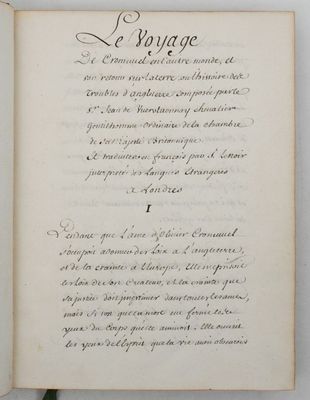 Le Voyage
De Cromwel en l'autre monde, et
son retour sur la terre ou l'histoire des
troubles d'angleterre composée par le
Sr. Jean de chevalier
Gentilhomme ordinaire de la chambre
de sa Majesté Britannique
Et traduite en françois par Sr. Lenoir
interprete des Langues Etrangeres
a Londres
I
Pendant que l'ame d'Olivier Cromwel
s'occupoit a donner des loix a L'angleterre,
et de la crainte a l'Europe, Elle meprisoit
les loix de son Createur, et la crainte que
sa justice doit imprimer dans tous les
mais si tost que la mort eut fermé les
yeux du Corps qu'elle animoit. Elle ouvrit
les yeux de l'Esprit que la vie avoit obscurcis